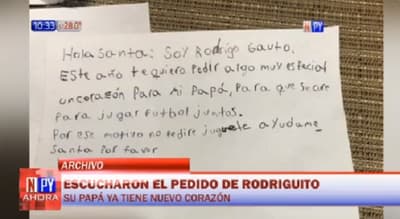 10:33
28.0°
NPY
Hola Santa: Soy Rodrigo Gauto.
Este año te quiero Pedir algo muy especial
un corazón Para Mi Papá, Para que sane
Para jugar Futbol juntos.
Por ese motivo no pedire juguete ayudame
Santa Por favor
ARCHIVO
NPY
AHORA
ESCUCHARON EL PEDIDO DE RODRIGUITO
SU PAPÁ YA TIENE NUEVO CORAZÓN